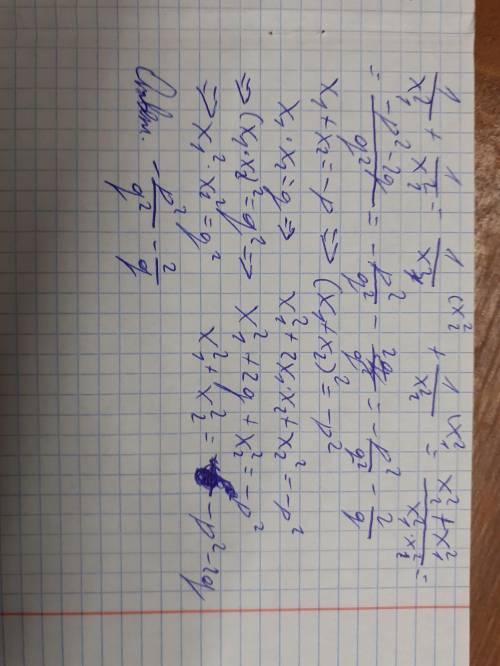 1/x₁² + 1/x₂² = 1/x₁² (x₂² + 1/x₂² (x₁² = (x₂² + x₁²)/(x₁² · x₂²) =
= (-p² - 2q)/q² = -p²/q² - 2q/q² = -p²/q² - 2/q
x₁ + x₂ = -p ⇒ (x₁ + x₂)² = -p²
x₁ · x₂ = q ⇒ x₁² + 2x₁x₂ + x₂² = -p²
⇒ (x₁ · x₂)² = q² ⇒ x₁² + 2q + x₂² = -p²
⇒ x₁² · x₂² = q² x₁² + x₂² = -p² - 2q
Ответ. -p²/q² - 2/q